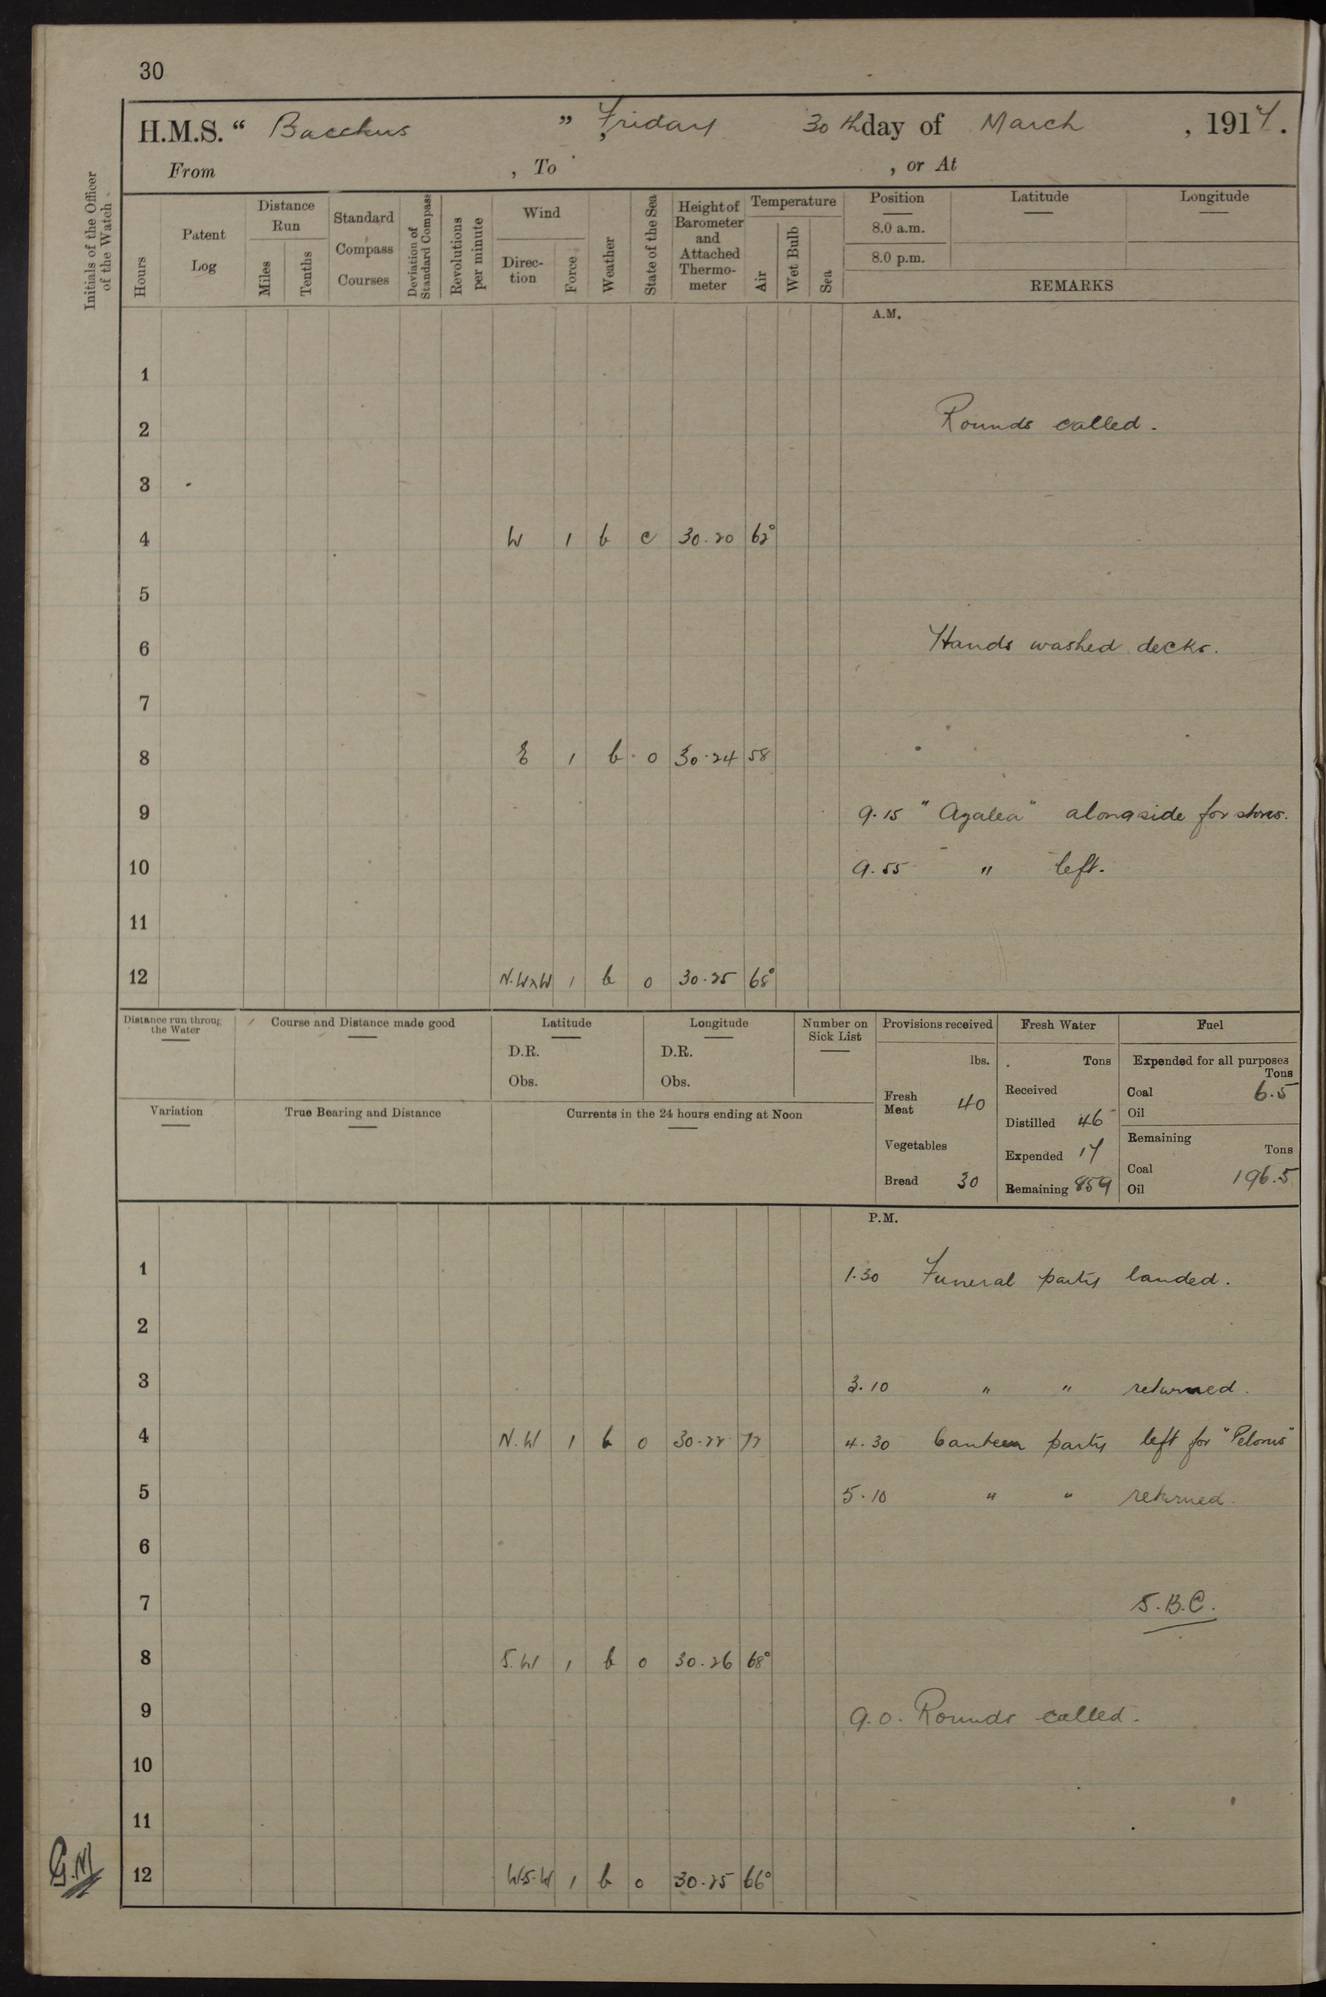 30
H.M.S. " Bacchus " Friday 30th day of March , 1917.
From , To , or At
Initials of the Officer of the Watch
Hours
Patent Log
Distance Run
Miles
Tenths
Standard Compass Courses
Deviation of Standard Compass
Revolutions per minute
Wind
Direction
Force
Weather
State of the Sea
Height of Barometer and Attached Thermometer
Temperature
Air
Wet Bulb
Sea
Position
8.0 a.m.
8.0 p.m.
Latitude
Longitude
REMARKS
A.M.
1
2 Rounds called.
3
4 W 1 b c 30.20 62°
5
6 Hands washed decks.
7
8 E 1 b 0 30.24 58
9 9.15 "Azalea" alongside for stores.
10 9.55 " left.
11
12 N.WxW 1 b 0 30.25 68°
Distance run through the Water
Course and Distance made good
Latitude
D.R.
Obs.
Longitude
D.R.
Obs.
Number on Sick List
Variation
True Bearing and Distance
Currents in the 24 hours ending at Noon
Provisions received
lbs.
Fresh Meat 40
Vegetables
Bread 30
Fresh Water
Tons
Received
Distilled 46
Expended 17
Remaining 859
Fuel
Expended for all purposes
Tons
Coal 6.5
Oil
Remaining
Tons
Coal 196.5
Oil
P.M.
1 1.30 Funeral party landed.
2
3 3.10 " " returned.
4 N.W 1 b 0 30.22 72 4.30 Canteen party left for "Pelorus"
5 5.10 " " returned.
6
7 S.B.C.
8 S.W 1 b 0 30.26 68°
9 9.0. Rounds called.
10
11
12 W.S.W 1 b 0 30.25 66°
G.M